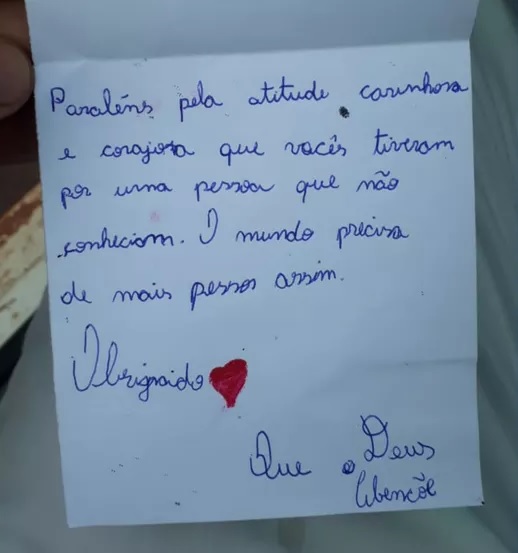 Parabéns pela atitude carinhosa
e corajosa que vocês tiveram
por uma pessoa que não
conheciam. O mundo precisa
de mais pessos assim.
Obrigado
Que Deus
Abençõe